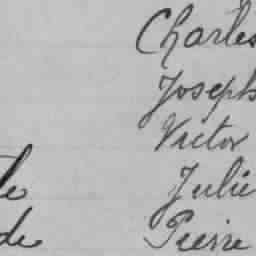 Charles
Joseph
Victor
Julie
de Pierre